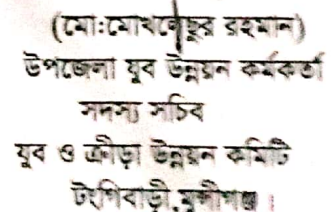 (মো:মোখলেছুর রহমান)
উপজেলা যুব উন্নয়ন কর্মকর্তা
সদস্য সচিব
যুব ও ক্রীড়া উন্নয়ন কমিটি
টংগিবাড়ী,মুন্সীগঞ্জ।